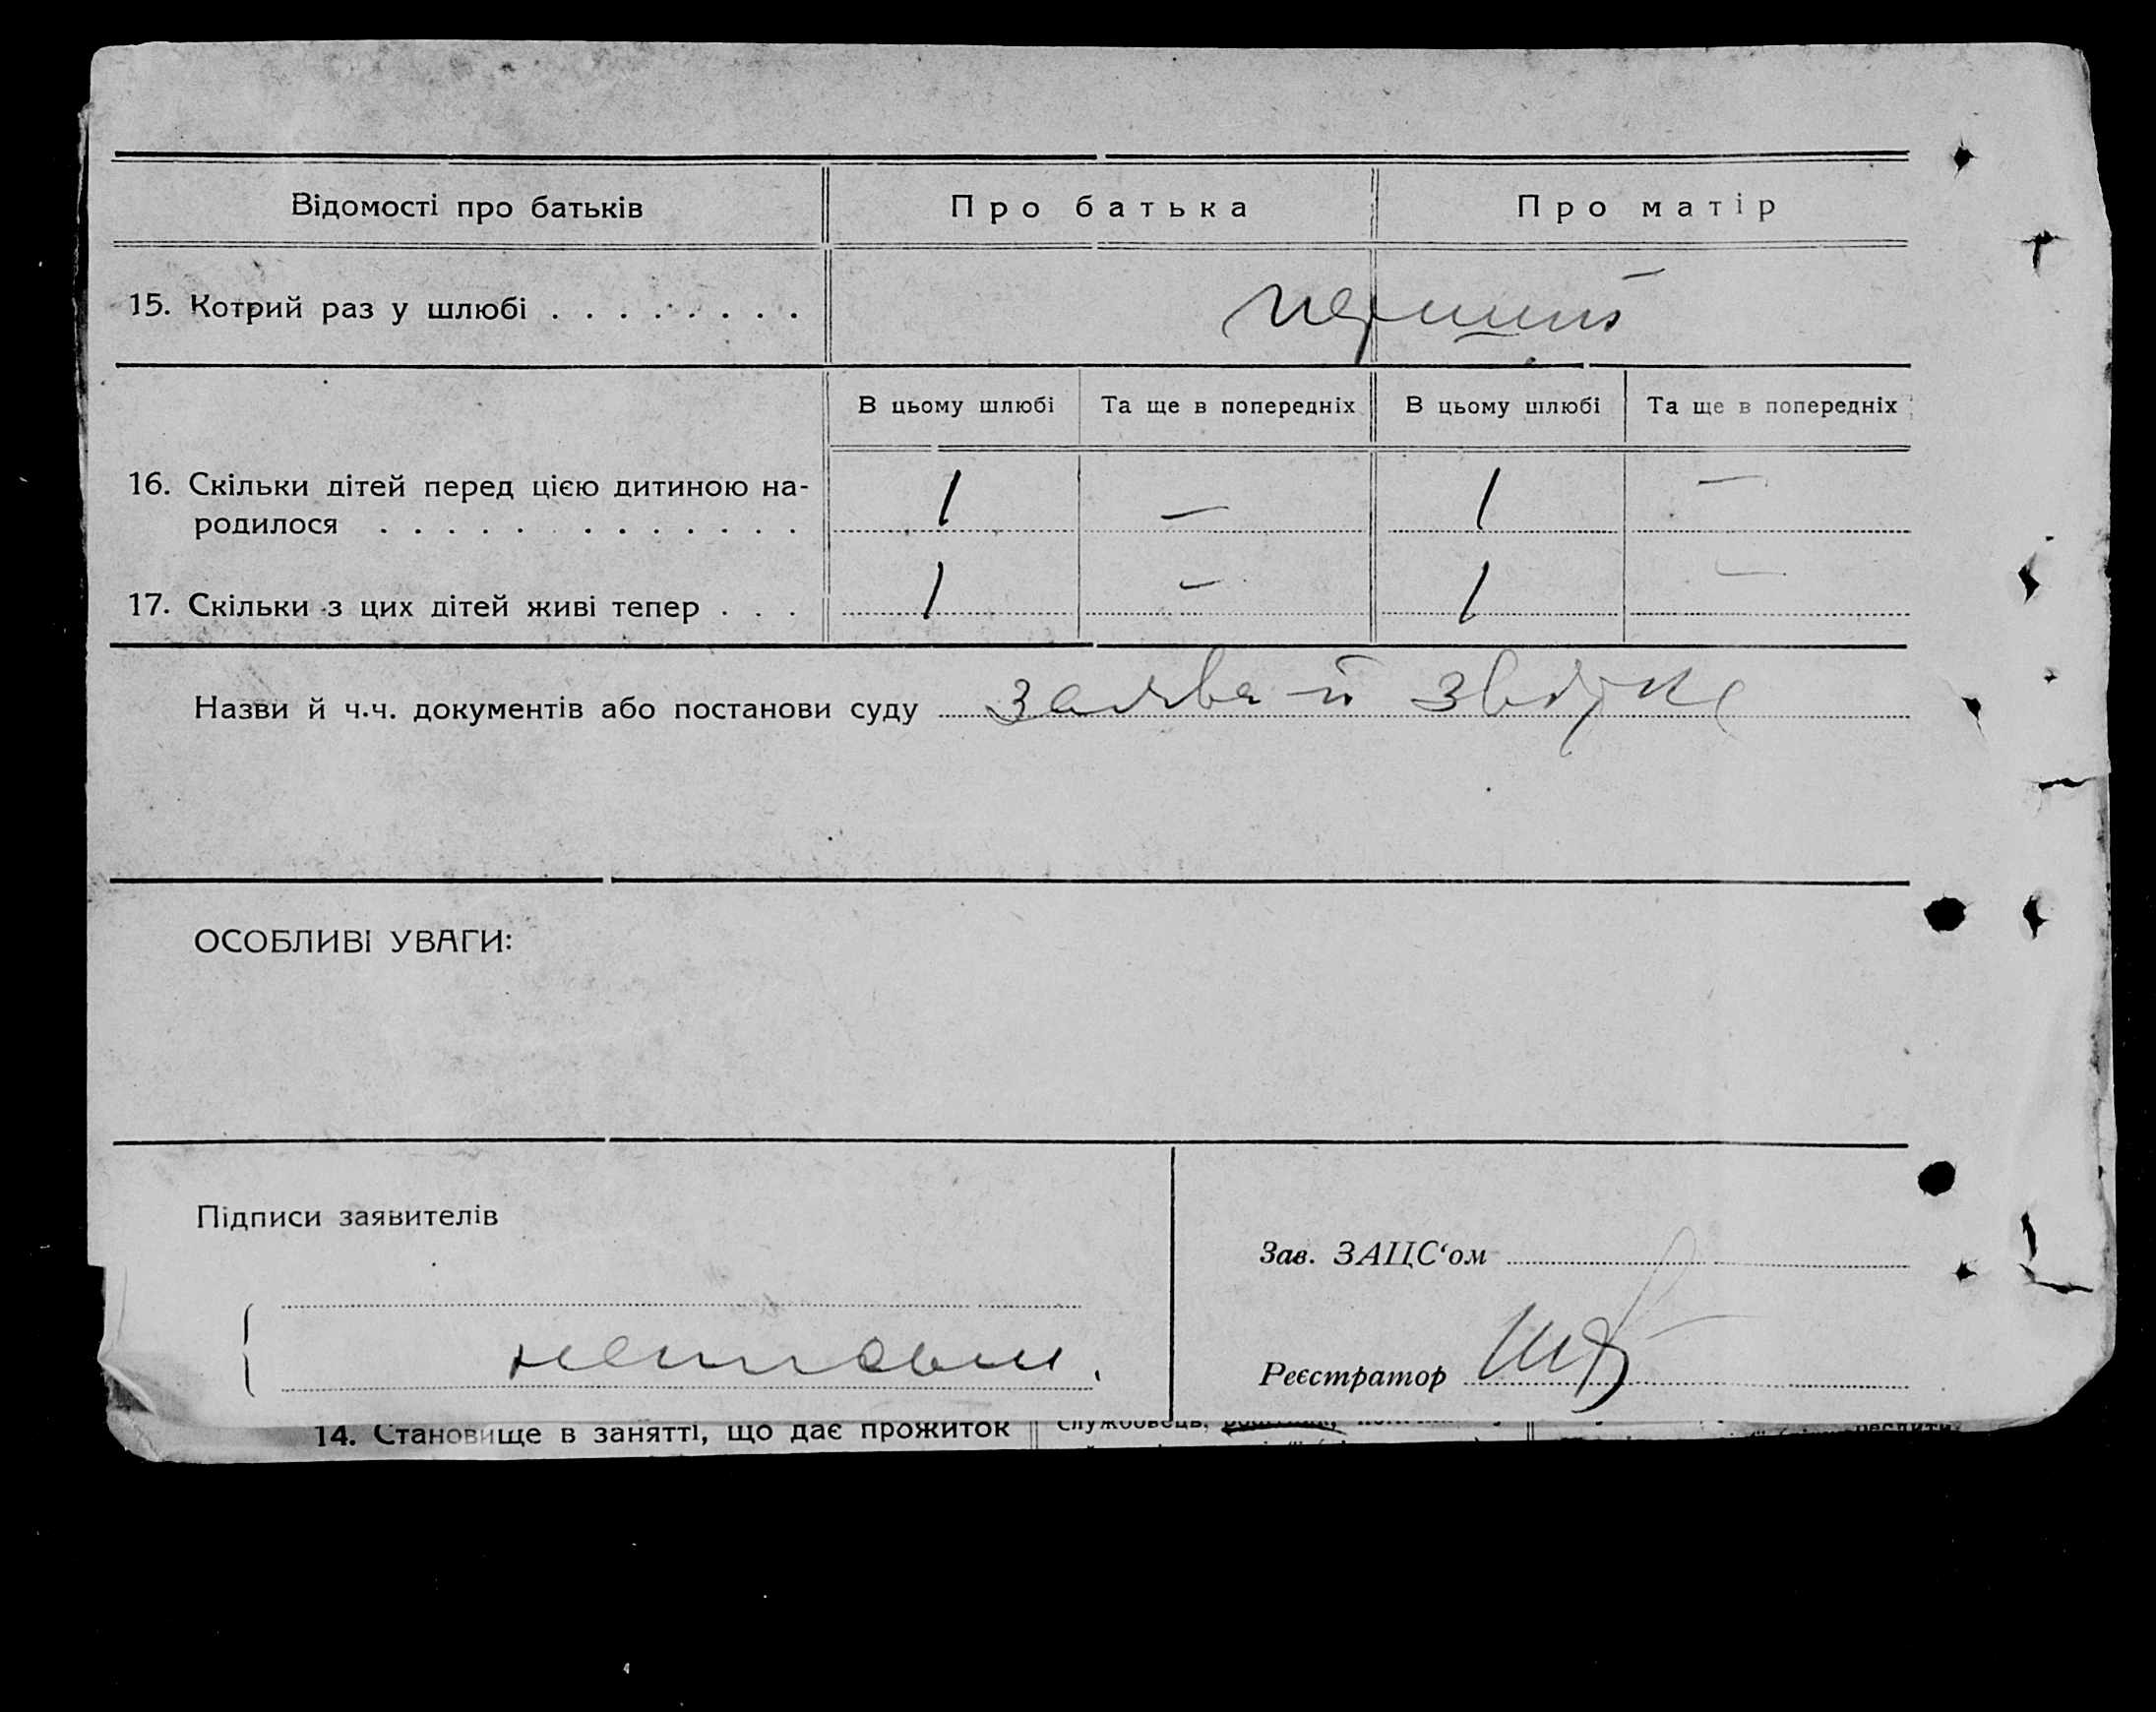 Відомості про батьків Про батька Про матір
15. Котрий раз у шлюбі . . . . . . . . перший
В цьому шлюбі Та ще в попередніх В цьому шлюбі Та ще в попередніх
16. Скільки дітей перед цією дитиною на-
родилося . . . . . . . . . . . . . 1 — 1 —
17. Скільки з цих дітей живі тепер . . . 1 — 1 —
Назви й ч.ч. документів або постанови суду заява й
ОСОБЛИВІ УВАГИ:
Підписи заявителів
Зав. ЗАЦС‘ом
неписьм.
Реєстратор
14. Становище в занятті, що дає прожиток службовець,